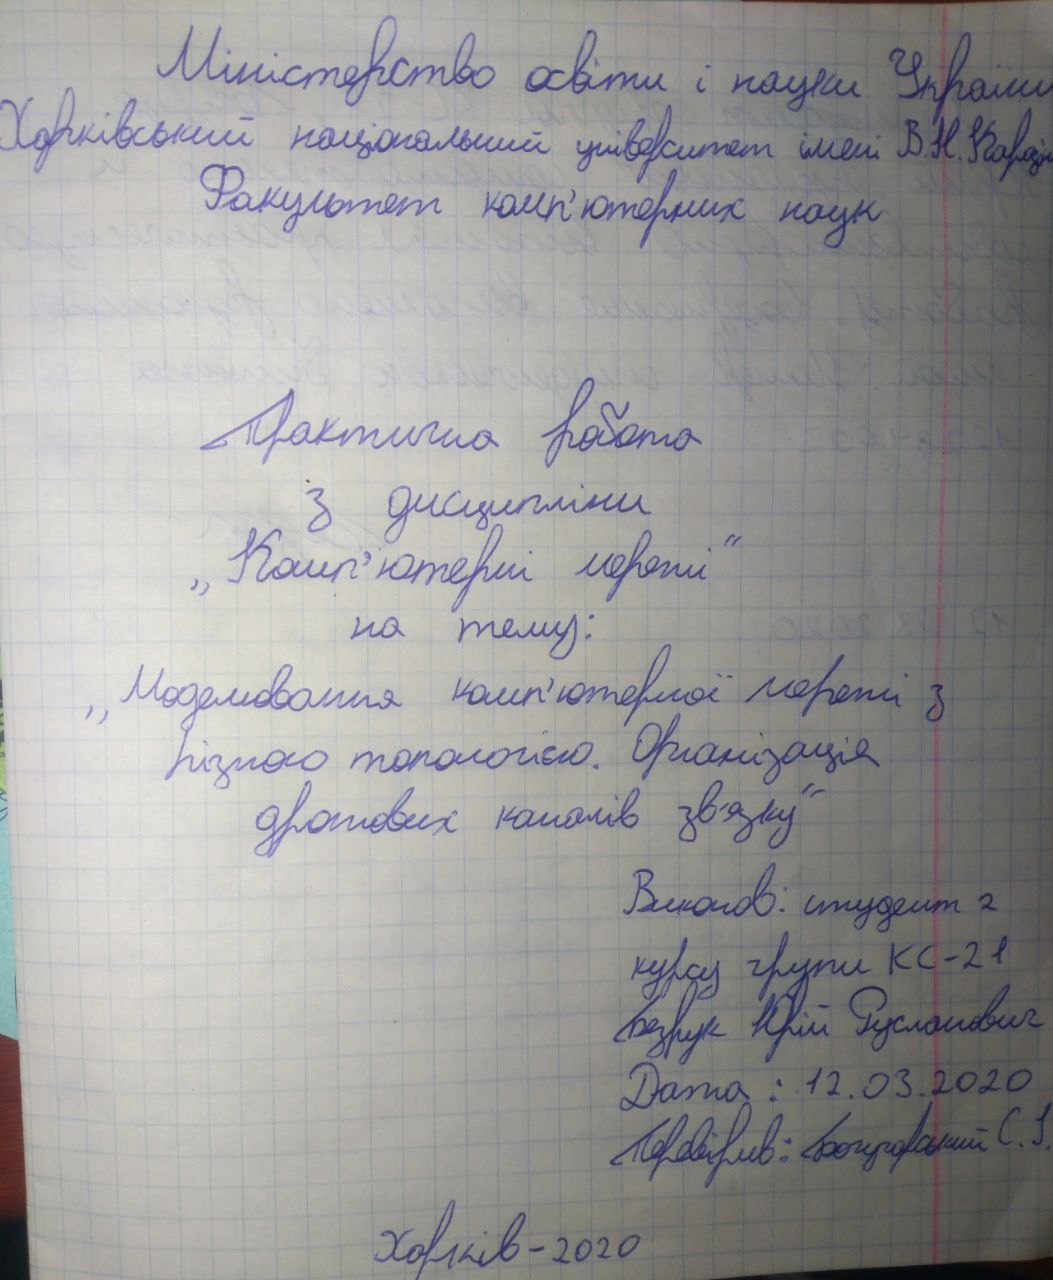 Міністерство освіти і науки України
Харківський національний університет імені В.Н. Каразін
Факультет комп'ютерних наук
Практична робота
з дисципліни
„Комп'ютерні мережі“
на тему:
„Моделювання комп'ютерної мережі з
різною топологією. Організація
дротових каналів зв'язку“
Виконав: студент 2
курсу групи КС-21
Безрук Юрій Русланович
Дата: 12.03.2020
Перевірив: С.
Харків-2020